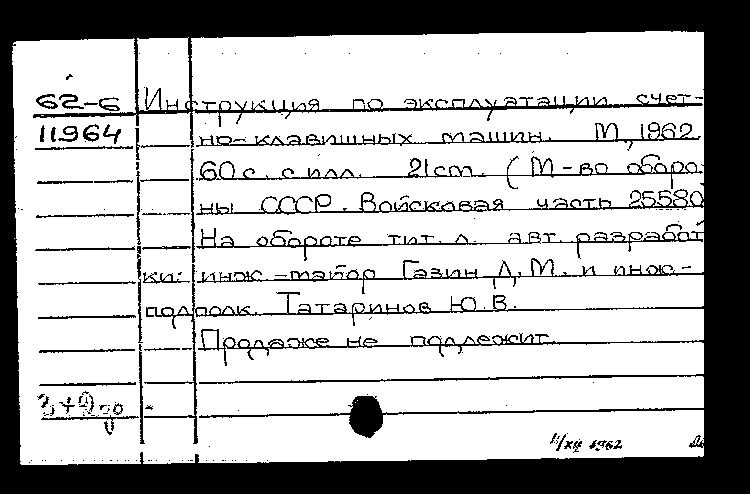 62-6 Инструкция по эксплуатации счет-
11964 но-клавишных машин. М., 1962.
60 с. с илл. 21 cm. (М-во оборо
ны СССР. Войсковая часть 25580
На обороте тит. л. авт. разработ
ки: инж-майор Газин Д.М. и инж-
подполк. Татаринов Ю.В.
Продаже не подлежит.
1962